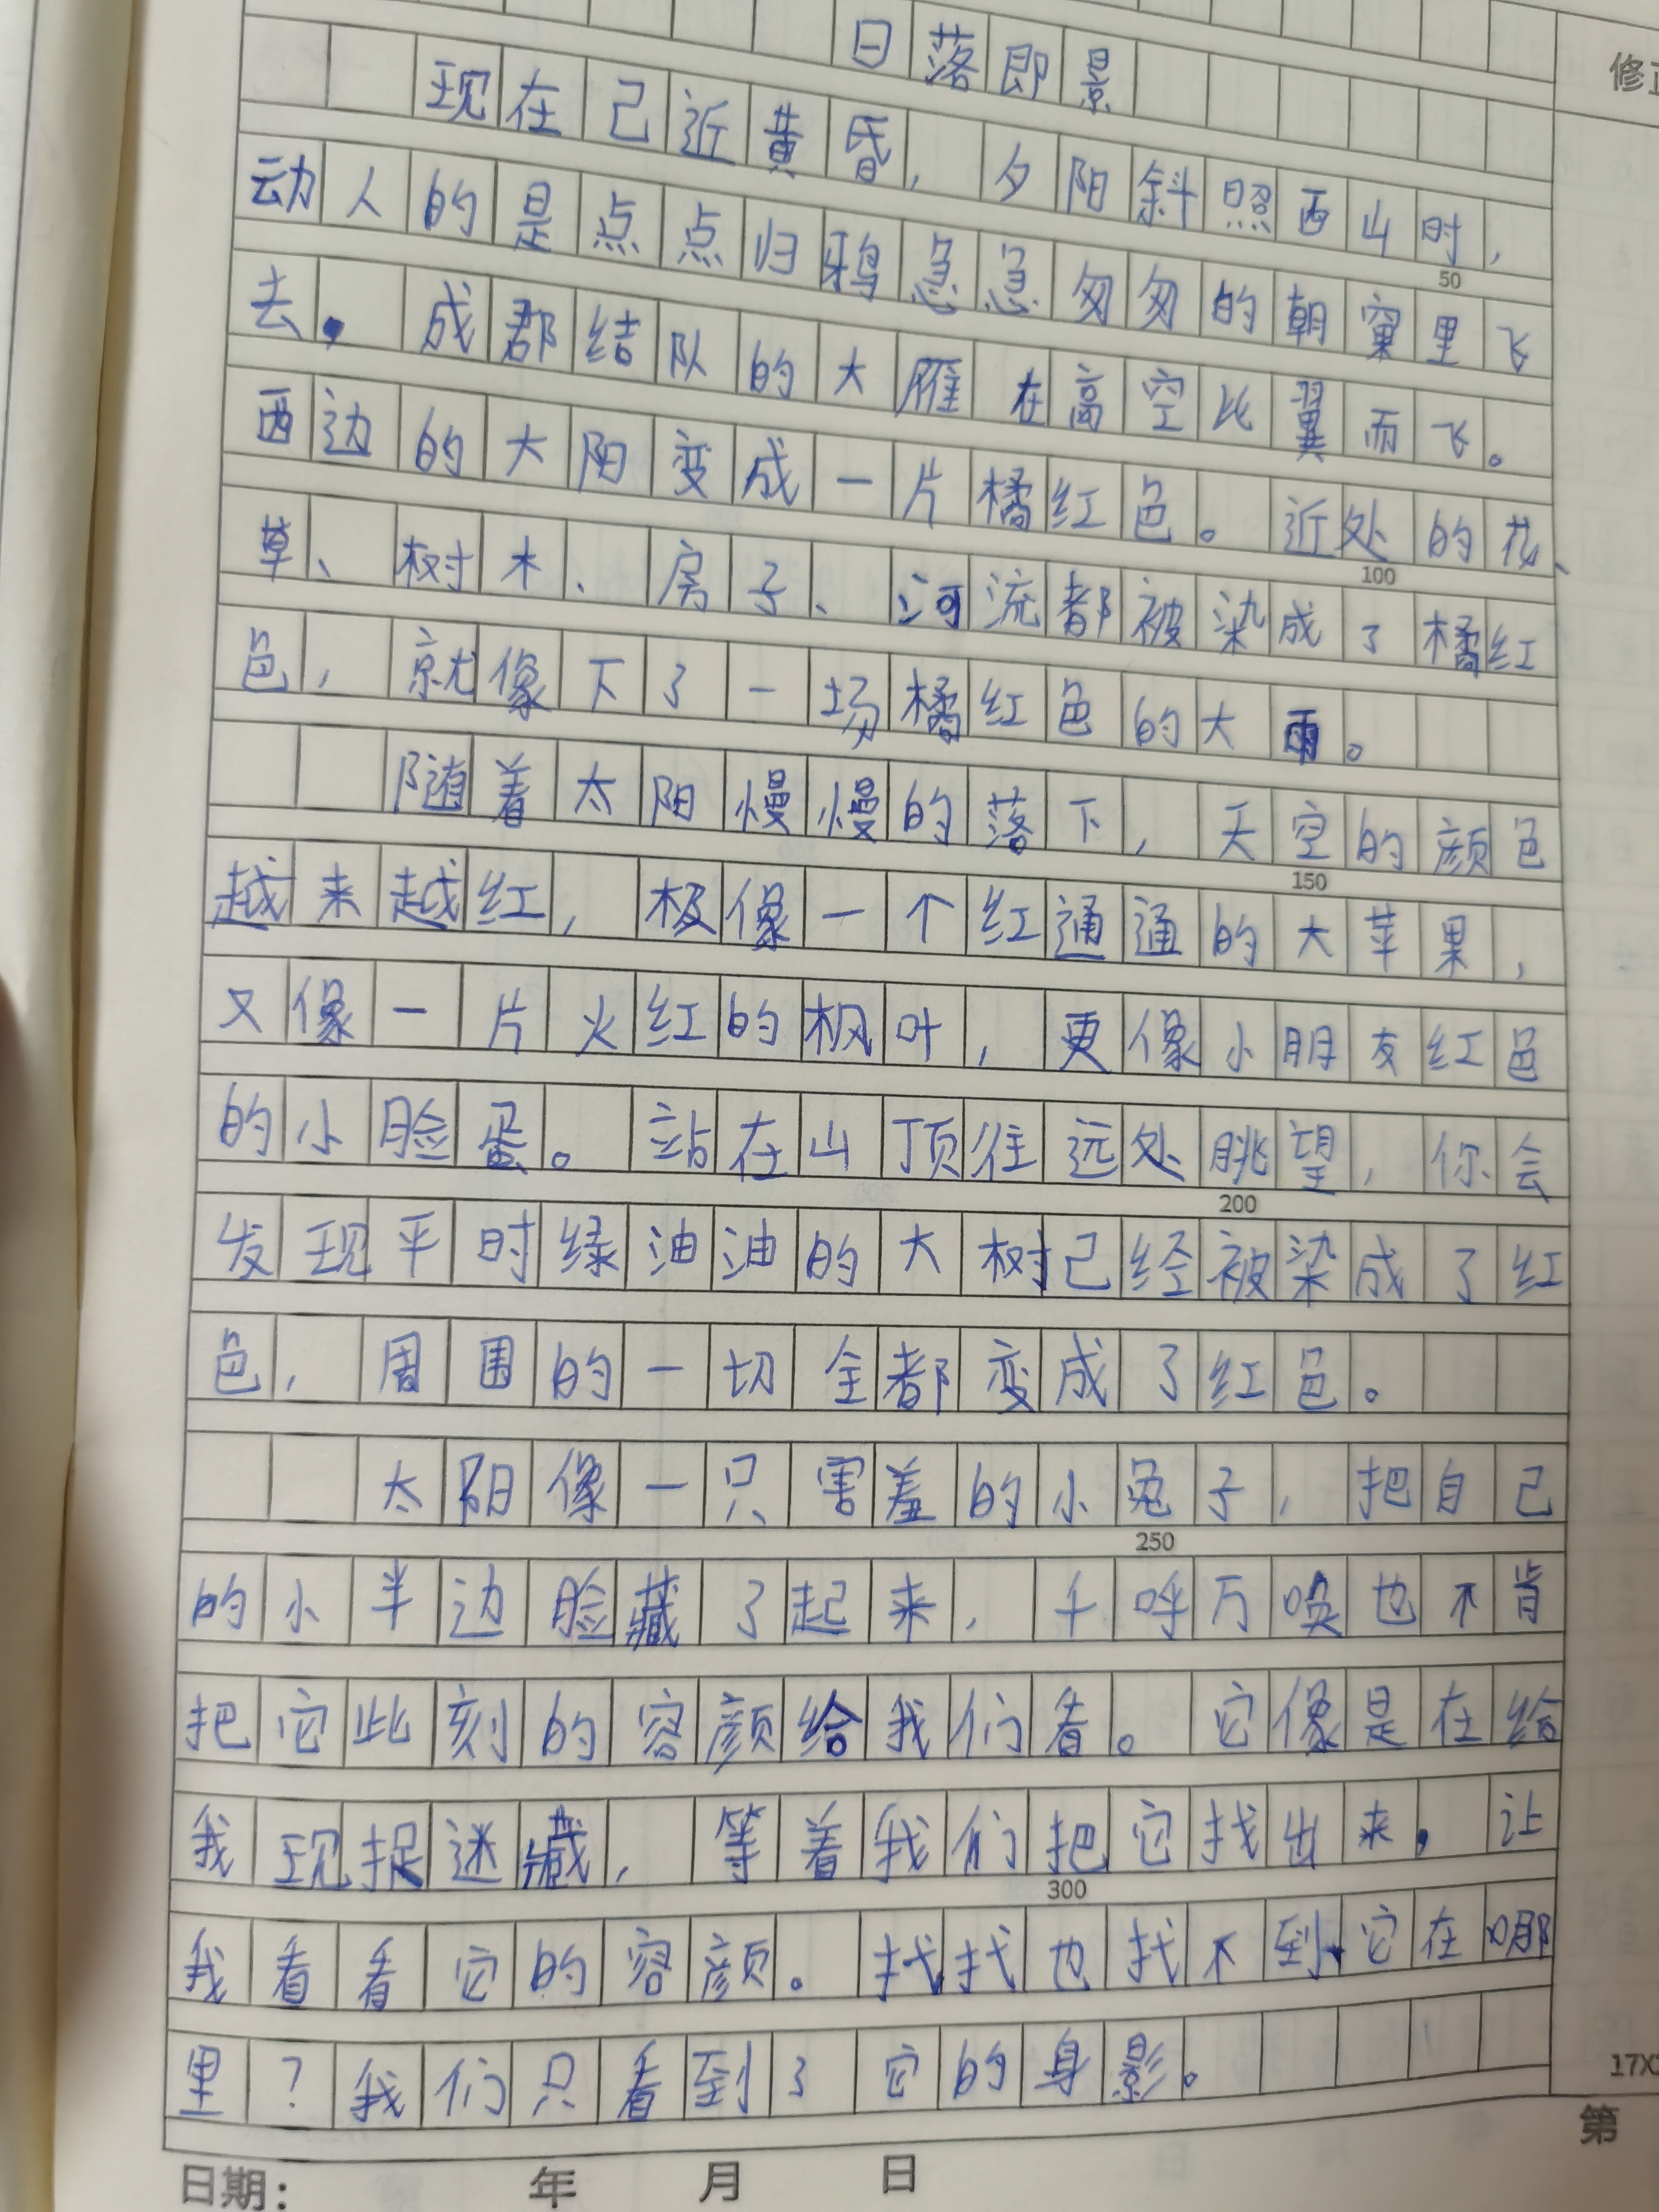 日落即景
修正
现在己近黄昏，夕阳斜照西山时，
动人的是点点归鸦急急匆匆的朝窠里飞
50
去。成郡结队的大雁在高空比翼而飞。
西边的大阳变成一片橘红色。近处的花、
100
草、树木、房子、河流都被染成了橘红
色，就像下了一场橘红色的大雨。
随着太阳慢慢的落下，天空的颜色
150
越来越红，极像一个红通通的大苹果，
又像一片火红的枫叶，更像小朋友红色
的小脸蛋。站在山顶往远处眺望，你会
200
发现平时绿油油的大树己经被染成了红
色，周围的一切全都变成了红色。
太阳像一只害羞的小兔子，把自己
250
的小半边脸藏了起来，千呼万唤也不肯
把它此刻的容颜给我们看。它像是在给
我现捉迷藏，等着我们把它找出来。让
300
我看看它的容颜。找找也找不到，它在哪
里？我们只看到了它的身影。
17X
第
日期： 年 月 日